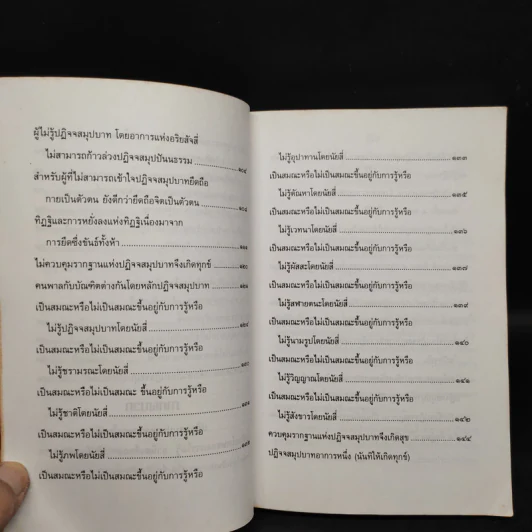 ผู้ไม่รู้ปฏิจจสมุปบาท โดยอาการแห่งอริยสัจสี่
ไม่สามารถก้าวล่วงปฏิจจสมุปปันนธรรม
สำหรับผู้ที่ไม่สามารถเข้าใจปฏิจจสมุปบาทยึดถือ
กายเป็นตัวตน ยังดีกว่ายึดถือจิตเป็นตัวตน
ทิฏฐิและการหยั่งลงแห่งทิฏฐิเนื่องมาจาก
การยึดซึ่งขันธ์ทั้งห้า
ไม่ควบคุมรากฐานแห่งปฏิจจสมุปบาทจึงเกิดทุกข์
คนพาลกับบัณฑิตต่างกันโดยหลักปฏิจจสมุปบาท
เป็นสมณะหรือไม่เป็นสมณะขึ้นอยู่กับการรู้หรือ
ไม่รู้ปฏิจจสมุปบาทโดยนัยสี่
เป็นสมณะหรือไม่เป็นสมณะขึ้นอยู่กับการรู้หรือ
ไม่รู้ชรามรณะโดยนัยสี่
เป็นสมณะหรือไม่เป็นสมณะ ขึ้นอยู่กับการรู้หรือ
ไม่รู้ชาติโดยนัยสี่
เป็นสมณะหรือไม่เป็นสมณะขึ้นอยู่กับการรู้หรือ
ไม่รู้ภพโดยนัยสี่
เป็นสมณะหรือไม่เป็นสมณะขึ้นอยู่กับการรู้หรือ
ไม่รู้อุปาทานโดยนัยสี่ ๑๓๓
เป็นสมณะหรือไม่เป็นสมณะขึ้นอยู่กับการรู้หรือ
ไม่รู้ตัณหาโดยนัยสี่ ๑๓๕
เป็นสมณะหรือไม่เป็นสมณะขึ้นอยู่กับการรู้หรือ
ไม่รู้เวทนาโดยนัยสี่ ๑๓๖
เป็นสมณะหรือไม่เป็นสมณะขึ้นอยู่กับการรู้หรือ
ไม่รู้ผัสสะโดยนัยสี่ ๑๓๗
เป็นสมณะหรือไม่เป็นสมณะขึ้นอยู่กับการรู้หรือ
ไม่รู้สฬายตนะโดยนัยสี่ ๑๓๙
เป็นสมณะหรือไม่เป็นสมณะขึ้นอยู่กับการรู้หรือ
ไม่รู้นามรูปโดยนัยสี่ ๑๔๐
เป็นสมณะหรือไม่เป็นสมณะขึ้นอยู่กับการรู้หรือ
ไม่รู้วิญญาณโดยนัยสี่ ๑๔๑
เป็นสมณะหรือไม่เป็นสมณะขึ้นอยู่กับการรู้หรือ
ไม่รู้สังขารโดยนัยสี่ ๑๔๒
ควบคุมรากฐานแห่งปฏิจจสมุปบาทจึงเกิดสุข ๑๔๔
ปฏิจจสมุปบาทอาการหนึ่ง (นันทิให้เกิดทุกข์)